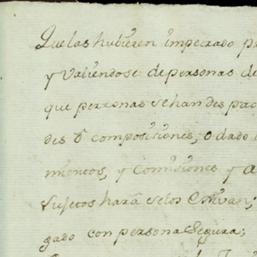 Que las hubieren imperado p
y valiendose de personas de
que personas se han des pac
des o composiciones, o dado
mientos, y Comisiones y a
sujetos hará se los
gado con persona Segura;